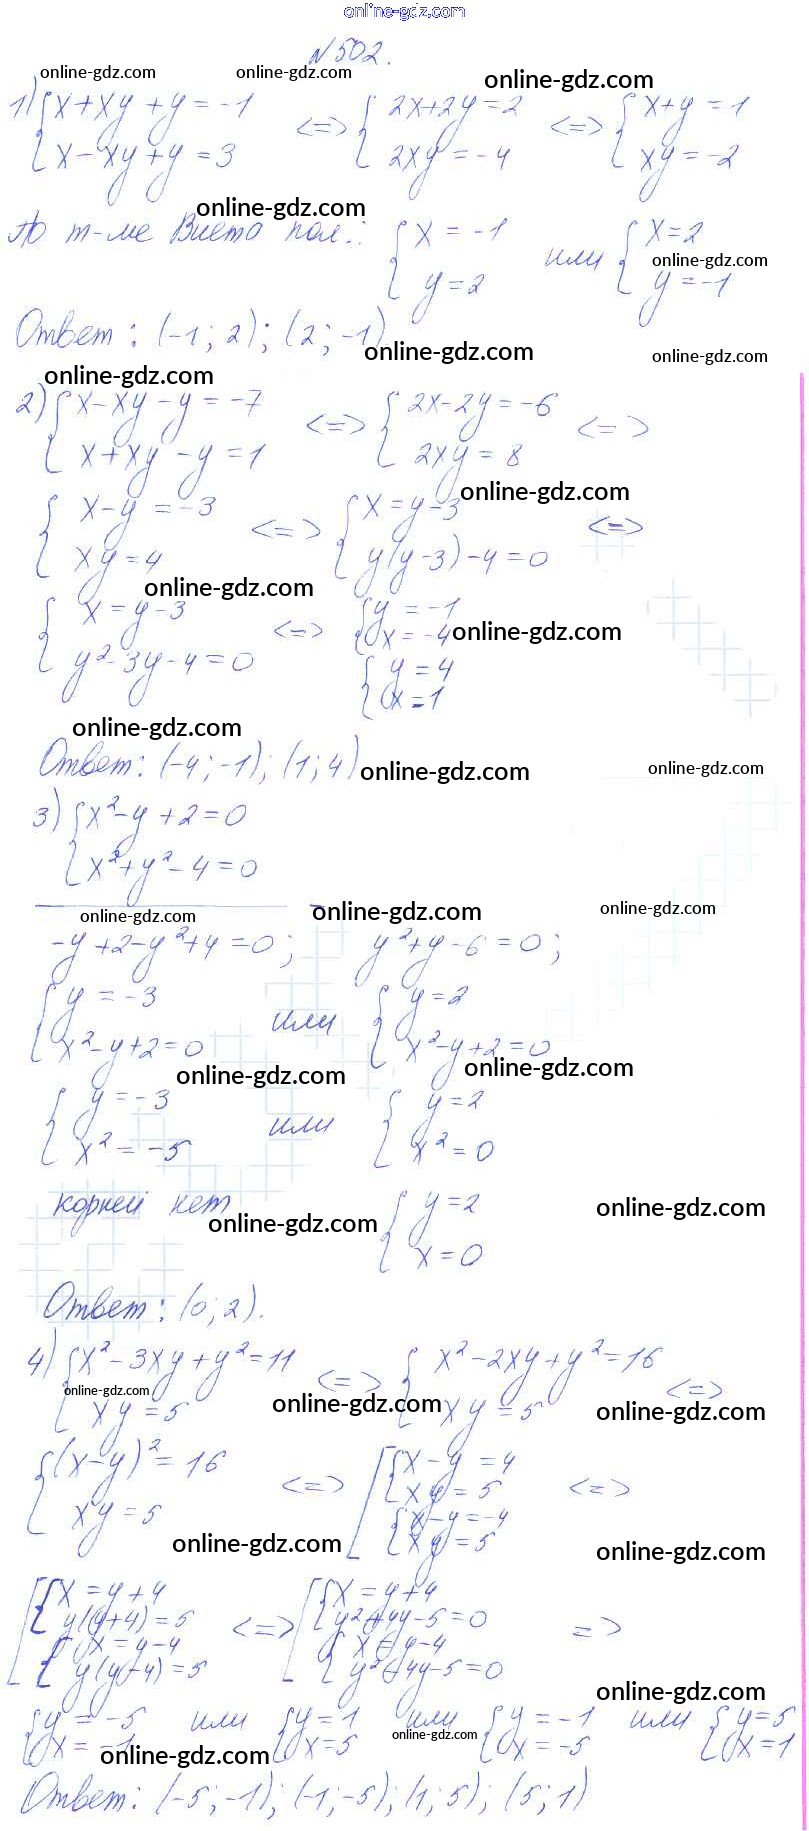 online-gdz.com
№502.
online-gdz.com online-gdz.com online-gdz.com
1) { x+xy+y=-1 <=> { 2x+2y=2 <=> { x+y=1
x-xy+y=3 2xy=-4 xy=-2
online-gdz.com
По т-ме Виета пол.: { x=-1 или { x=2
online-gdz.com
y=2 y=-1
Ответ: (-1; 2); (2; -1)
online-gdz.com online-gdz.com
online-gdz.com
2) { x-xy-y=-7 <=> { 2x-2y=-6 <=>
x+xy-y=1 2xy=8
online-gdz.com
{ x-y=-3 <=> { x=y-3 <=>
xy=4 y(y-3)-4=0
online-gdz.com
{ x=y-3 <=> { y=-1
x=-4 online-gdz.com
y²-3y-4=0 { y=4
x=1
online-gdz.com
Ответ: (-4; -1); (1; 4) online-gdz.com online-gdz.com
3) { x²-y+2=0
x²+y²-4=0
online-gdz.com online-gdz.com online-gdz.com
-y+2-y²+4=0; y²+y-6=0;
{ y=-3 или { y=2
x²-y+2=0 x²-y+2=0
online-gdz.com online-gdz.com
{ y=-3 или { y=2
x²=-5 x²=0
корней нет { y=2
online-gdz.com online-gdz.com
x=0
Ответ: (0; 2).
4) { x²-3xy+y²=11 <=> { x²-2xy+y²=16 <=>
online-gdz.com online-gdz.com online-gdz.com
xy=5 xy=5
{ (x-y)²=16 <=> [ { x-y=4 <=>
xy=5
xy=5 { x-y=-4
xy=5
online-gdz.com online-gdz.com
[ { x=y+4 <=> [ { x=y+4 =>
y(y+4)=5 y²+4y-5=0
{ x=y-4 { x=y-4
y(y-4)=5 y²-4y-5=0
online-gdz.com
{ y=-5 или { y=1 или { y=-1 или { y=5
x=-1 x=5 online-gdz.com x=-5 x=1
online-gdz.com
Ответ: (-5; -1); (-1; -5); (1; 5); (5; 1)